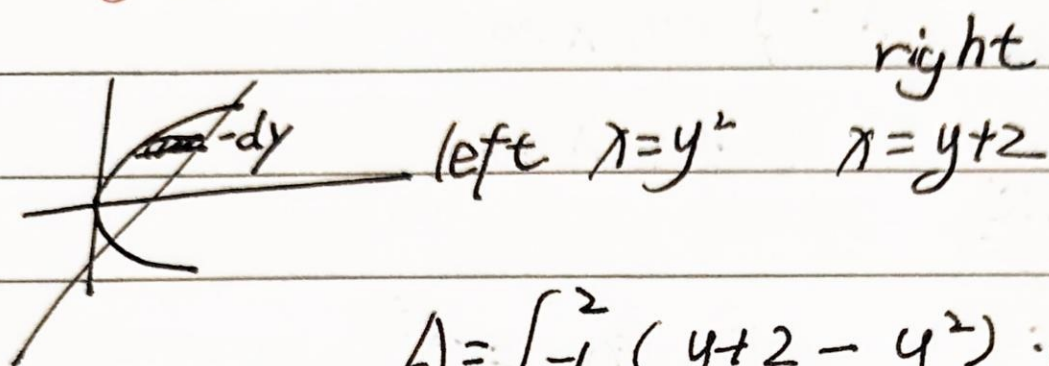 right
-dy left x=y² x=y+2
A=∫₋₁² (y+2-y²)